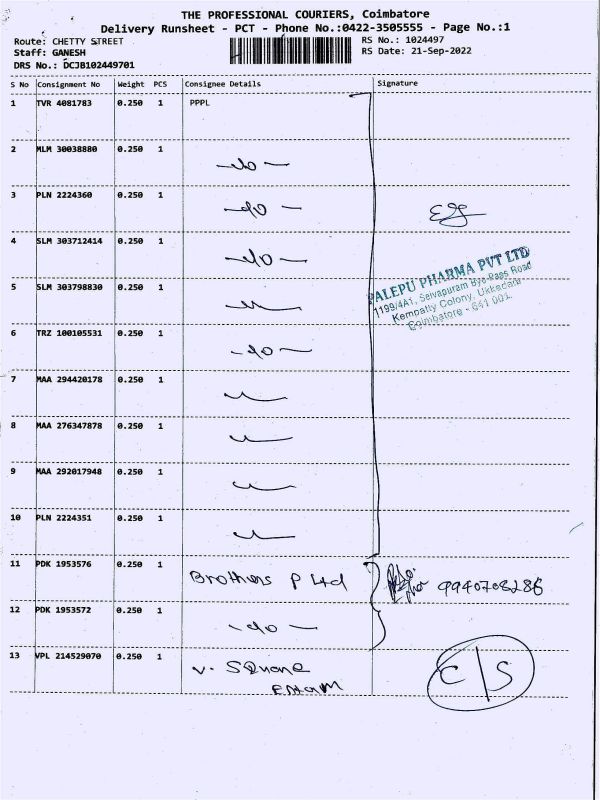 THE PROFESSIONAL COURIERS, Coimbatore
Delivery Runsheet - PCT - Phone No.:0422-3505555 - Page No.:1
Route: CHETTY STREET
Staff: GANESH
DRS No.: DCJB102449701
RS No.: 1024497
RS Date: 21-Sep-2022
S No Consignment No Weight PCS Consignee Details Signature
1 TVR 4081783 0.250 1 PPPL
2 MLM 30038880 0.250 1 -do-
3 PLN 2224360 0.250 1 -do-
4 SLM 303712414 0.250 1 -do-
PALEPU PHARMA PVT LTD
1199/4A1, Selvapuram Bye-Pass Road
Kempatty Colony, Ukkadam
Coimbatore - 641 001.
5 SLM 303798830 0.250 1
6 TRZ 100105531 0.250 1 -do-
7 MAA 294420178 0.250 1
8 MAA 276347878 0.250 1
9 MAA 292017948 0.250 1
10 PLN 2224351 0.250 1
11 PDK 1953576 0.250 1 Brothers P Ltd 9940708286
12 PDK 1953572 0.250 1 -do-
13 VPL 214529070 0.250 1 V. Square
C/S